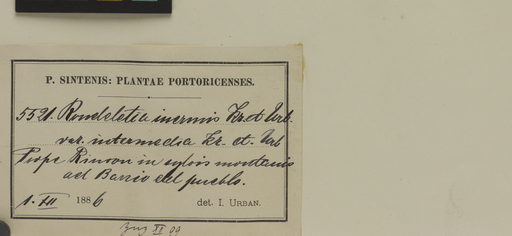 P. SINTENIS: PLANTAE PORTORICENSES.
5521. Rondeletia inermis Kr. et Urb.
var. intermedia Kr. et. Urb
Prope Rincon in sylvis montanis
ad Barrio del pueblo.
1. XII 1886 det. I. URBAN.